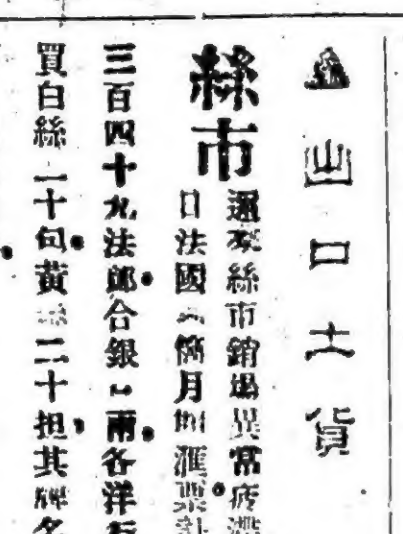 出口土貨
絲市
邇來絲市銷場異常疲滯
日法國六箇月期匯票計
三百四十九法郎合銀兩各洋
買白絲二十包黃絲二十担其牌名